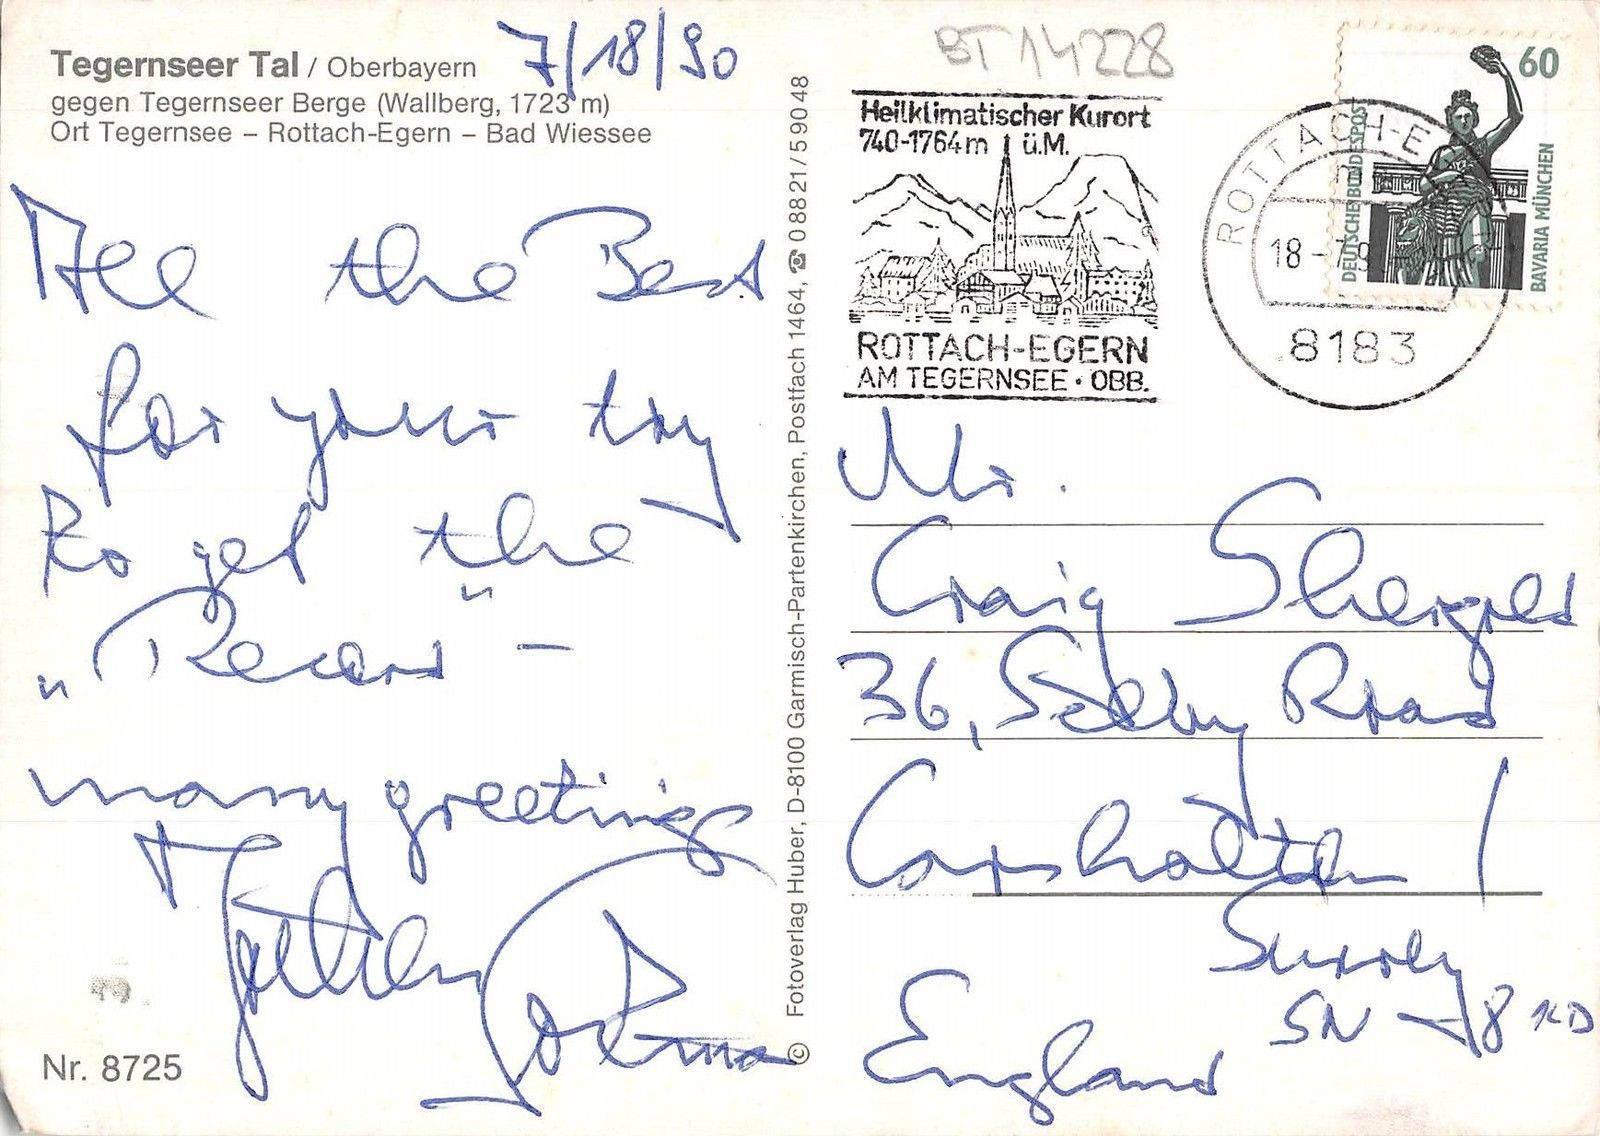 Tegernseer Tal / Oberbayern
gegen Tegernseer Berge (Wallberg, 1723 m)
Ort Tegernsee – Rottach-Egern – Bad Wiessee
7/18/90
All the Best
for your try
to get the
„Record" –
many greetings
Nr. 8725
© Fotoverlag Huber, D-8100 Garmisch-Partenkirchen, Postfach 1464, ☎ 0 88 21 / 5 90 48
BT 14228
Heilklimatischer Kurort
740-1764m ü.M.
ROTTACH-EGERN
AM TEGERNSEE · OBB.
ROTTACH-E
18 -7.9
8183
60
DEUTSCHE BUNDESPOST
BAVARIA MÜNCHEN
Mr.
Craig Shergold
36, Selby Road
Carshalton /
Surrey
SN 1KD
England